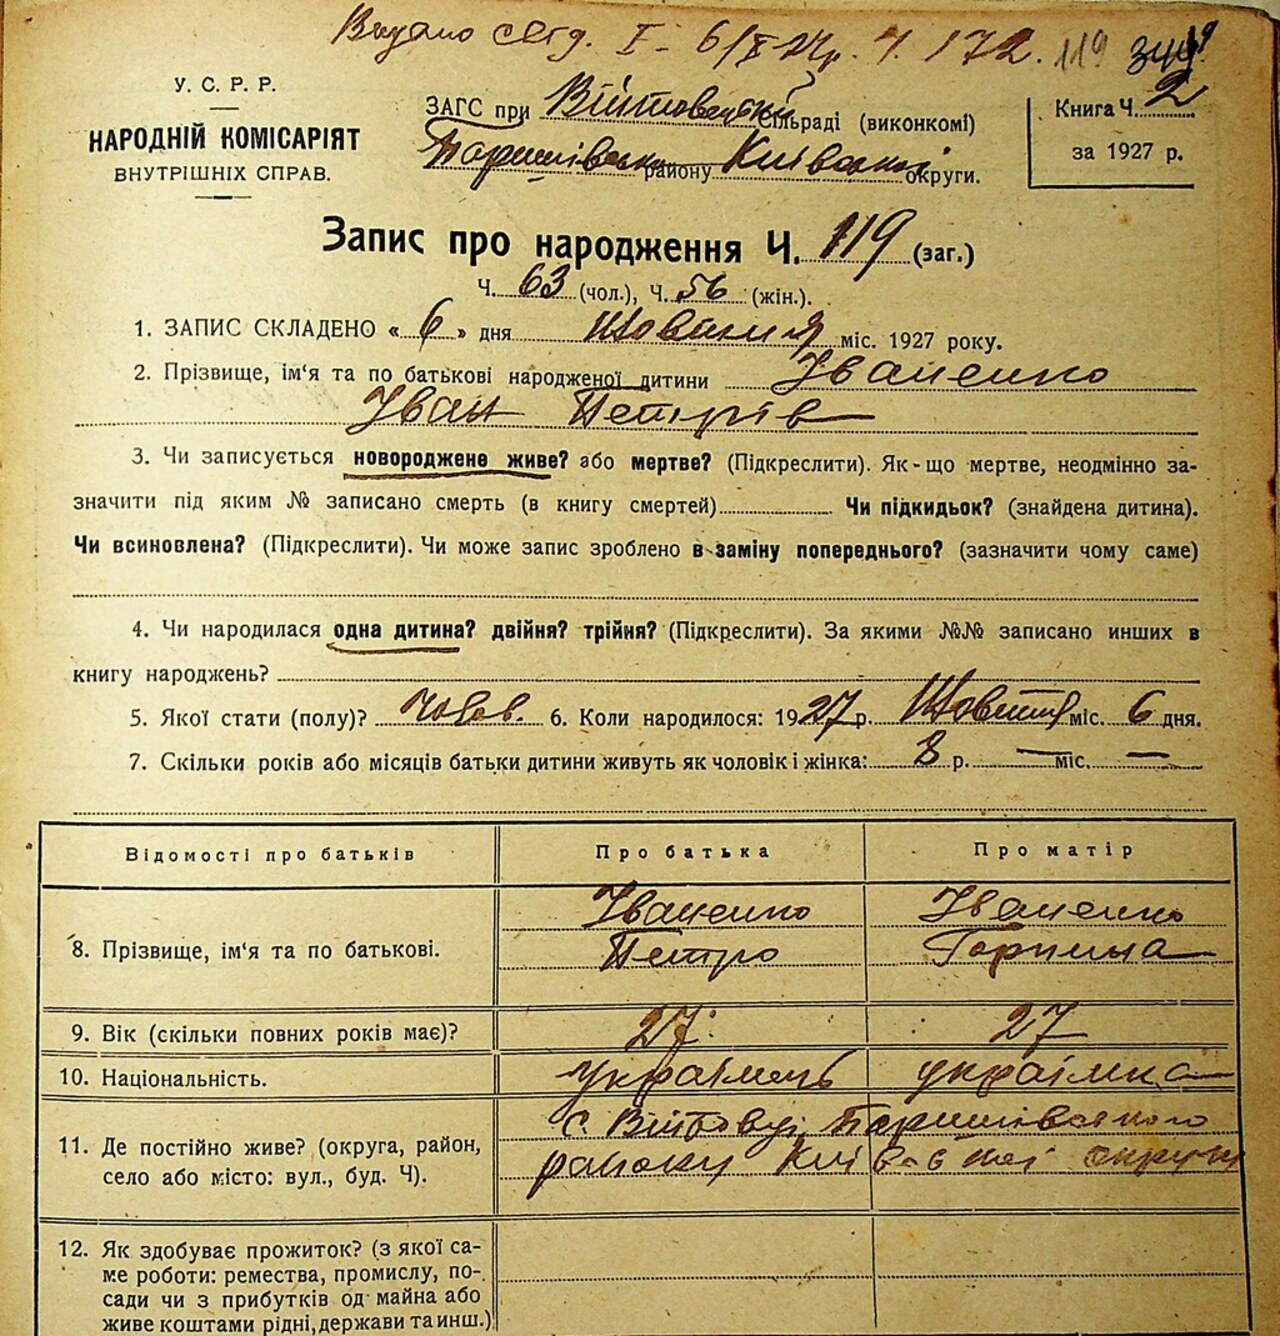 Видано I - 6/X 27р. Ч. 172. 119
У. С. Р. Р.
НАРОДНІЙ КОМІСАРІЯТ
ВНУТРІШНІХ СПРАВ.
ЗАГС при Війтовецькій Сільраді (виконкомі)
Баришівськ району Київської округи.
Книга Ч. 2
за 1927 р.
Запис про народження Ч. 119 (заг.)
Ч. 63 (чол.), Ч. 56 (жін.).
1. ЗАПИС СКЛАДЕНО «6» дня Жовтня міс. 1927 року.
2. Прізвище, ім'я та по батькові народженої дитини Іваненко
Іван Петрів
3. Чи записується новороджене живе? або мертве? (Підкреслити). Як-що мертве, неодмінно за-
значити під яким № записано смерть (в книгу смертей) Чи підкидьок? (знайдена дитина).
Чи всиновлена? (Підкреслити). Чи може запис зроблено в заміну попереднього? (зазначити чому саме)
4. Чи народилася одна дитина? двійня? трійня? (Підкреслити). За якими №№ записано инших в
книгу народжень?
5. Якої стати (полу)? Чолов. 6. Коли народилося: 1927 р. Жовтня міс. 6 дня.
7. Скільки років або місяців батьки дитини живуть як чоловік і жінка: 8 р. — міс. —
Відомості про батьків Про батька Про матір
8. Прізвище, ім'я та по батькові. Іваненко Петро Іваненко Горпина
9. Вік (скільки повних років має)? 27 27
10. Національність. українець українка
11. Де постійно живе? (округа, район,
село або місто: вул., буд. Ч).
с. Війтовці Баришівського
району Київської округи
12. Як здобуває прожиток? (з якої са-
ме роботи: ремества, промислу, по-
сади чи з прибутків од майна або
живе коштами рідні, держави та инш.)